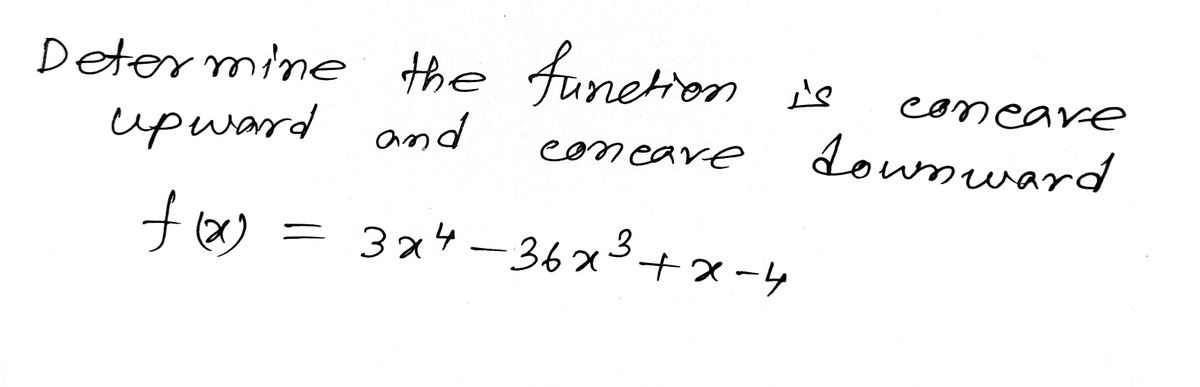 Determine the function is concave
upward and concave downward
f(x) = 3x⁴ - 36x³ + x - 4